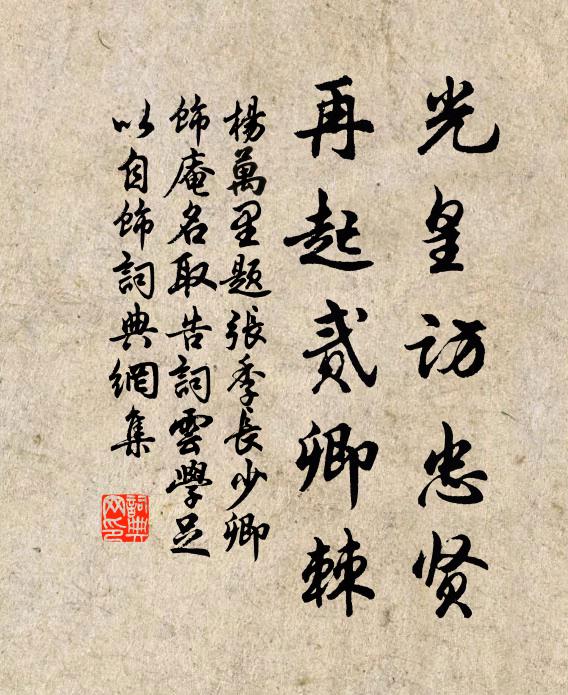 光皇访忠贤
再起贰卿棘
楊萬里题張季長少卿
飾庵名取告詞雲學足
以自飾詞典網集
詞典网印